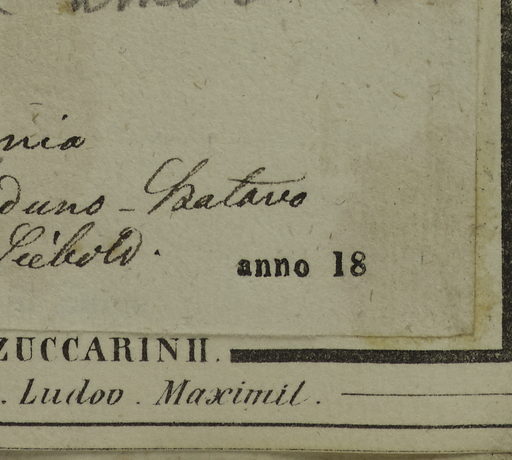 nia
duno-Batavo
Siebold.
anno 18
ZUCCARINII.
. Ludov. Maximil.